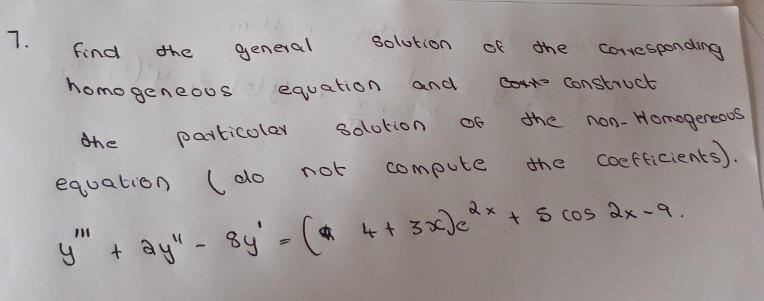 7. Find the general solution of the corresponding
homogeneous equation and construct
the particular solution of the non-Homogeneous
equation (do not compute the coefficients).
y''' + 2y'' - 8y' = (4 + 3x)e^2x + 5 cos 2x - 9.